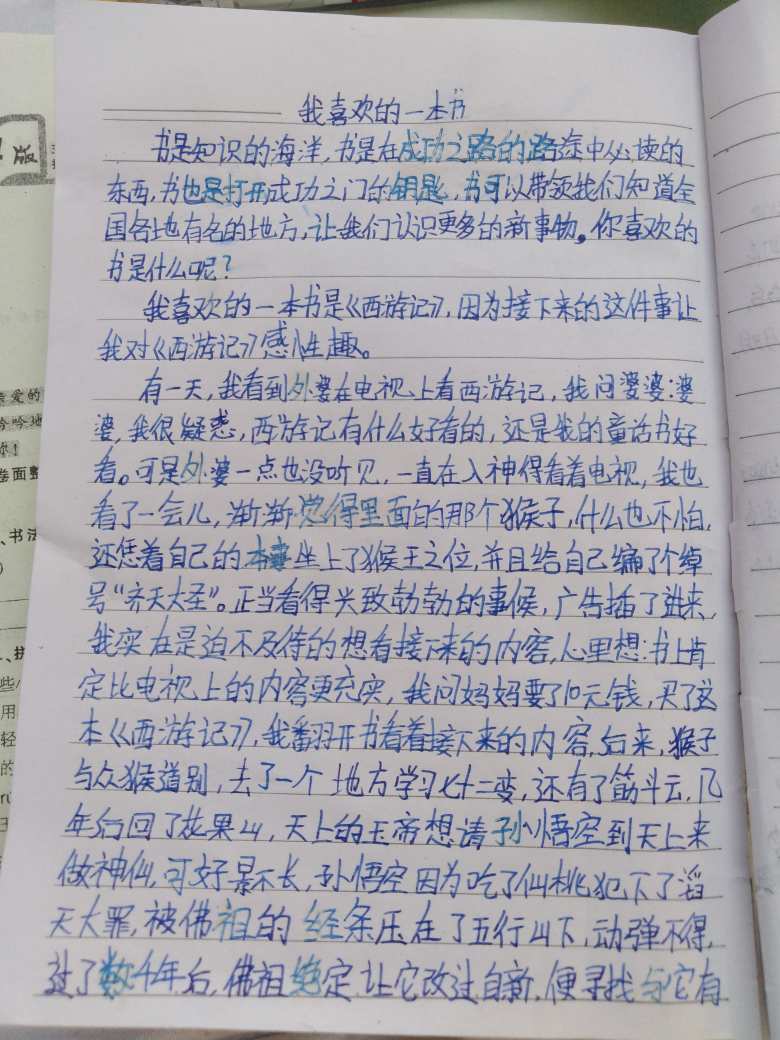 我喜欢的一本书
书是知识的海洋,书是在成功之路的路途中必读的
东西,书也是打开成功之门的钥匙,书可以带领我们知道全
国各地有名的地方,让我们认识更多的新事物。你喜欢的
书是什么呢?
我喜欢的一本书是《西游记》,因为接下来的这件事让
我对《西游记》感性趣。
有一天,我看到外婆在电视上看西游记,我问婆婆:婆
婆,我很疑惑,西游记有什么好看的,还是我的童话书好
看。可是外婆一点也没听见,一直在入神得看着电视,我也
看了一会儿,渐渐觉得里面的那个猴子,什么也不怕,
还凭着自己的本事坐上了猴王之位,并且给自己编了个绰
号“齐天大圣”。正当看得兴致勃勃的事候,广告插了进来,
我实在是迫不及待的想看接下来的内容,心里想:书上肯
定比电视上的内容更充实,我问妈妈要了10元钱,买了这
本《西游记》,我翻开书看着接下来的内容,后来,猴子
与众猴道别,去了一个地方学习七十二变,还有了筋斗云,几
年后回了花果山,天上的玉帝想请孙悟空到天上来
做神仙,可好景不长,孙悟空因为吃了仙桃犯下了滔
天大罪,被佛祖的经条压在了五行山下,动弹不得,
过了数千年后,佛祖绝定让它改过自新,便寻找与它有
版
亲爱的
吟吟地
你!
卷面整
、书法
、拼
些
用
轻
的